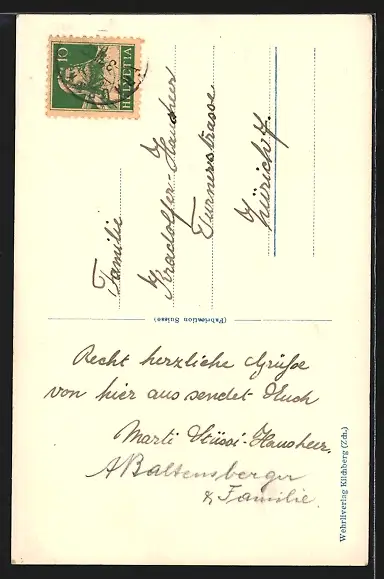 10
HELVETIA
Familie
Kradolfer-Hausheer
Turnerstrasse
Zürich 7.
(Fabrication Suisse)
Recht herzliche Grüsse
von hier aus sendet Euch
Marti Stüssi-Hausheer.
A Baltensberger
& Familie.
Wehrliverlag Kilchberg (Zch.)